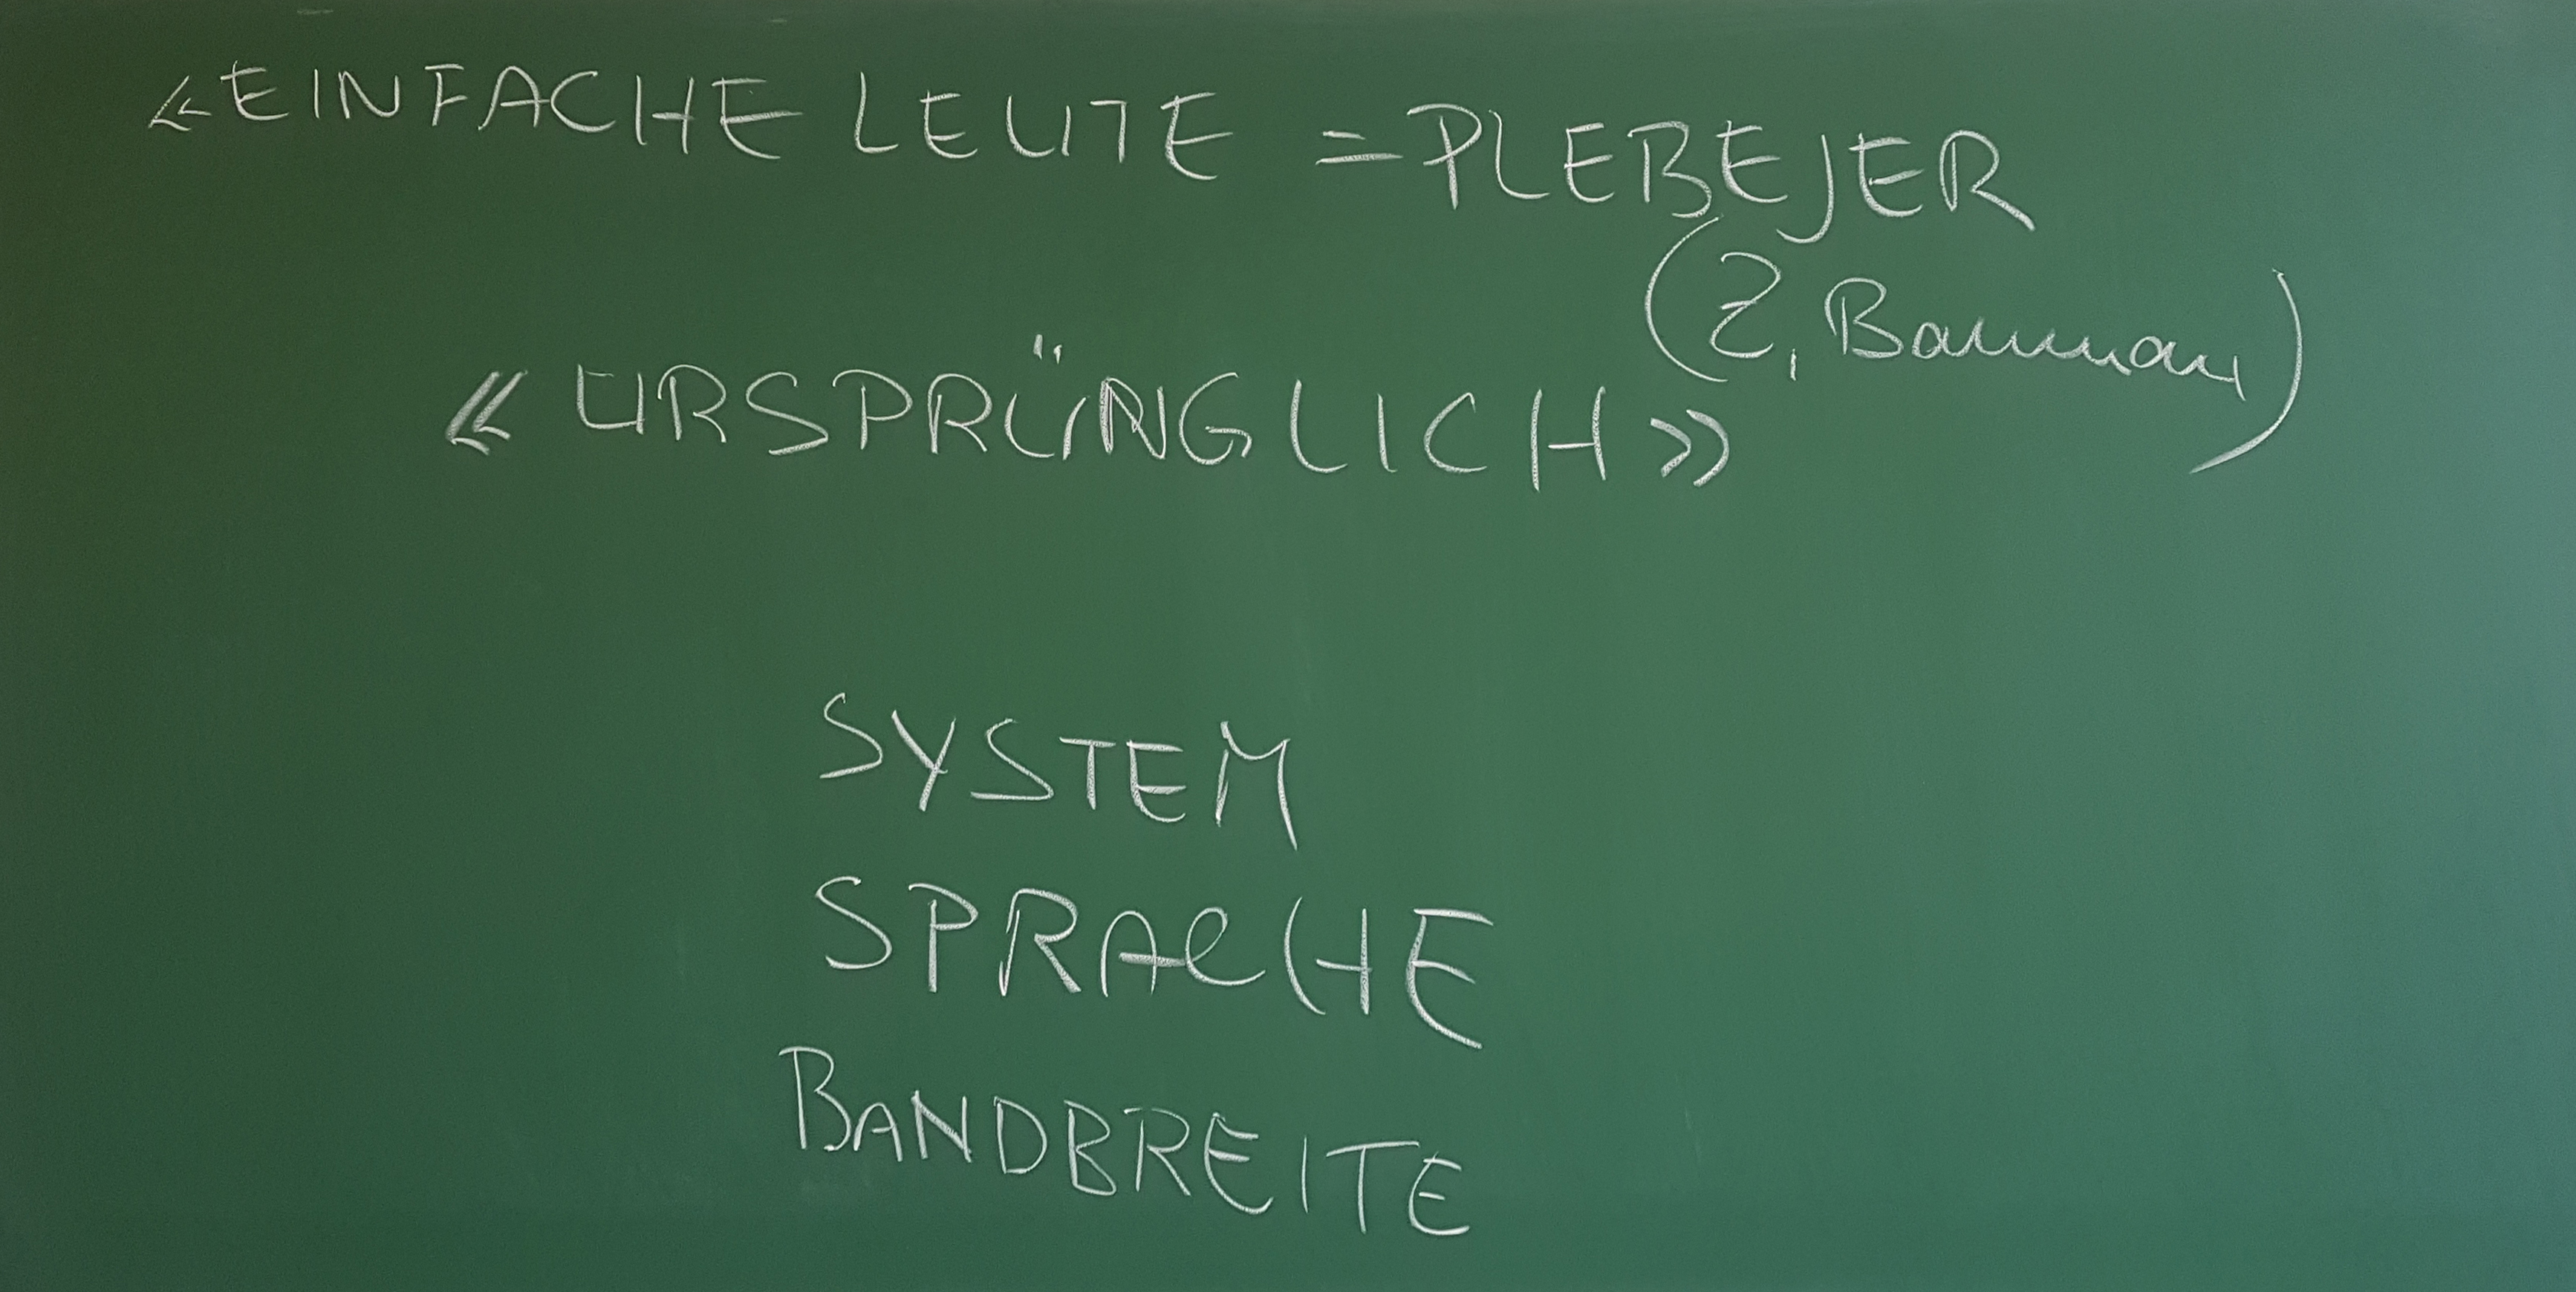 «EINFACHE LEUTE = PLEBEJER
(Z. Bauman)
«URSPRÜNGLICH»
SYSTEM
SPRACHE
BANDBREITE